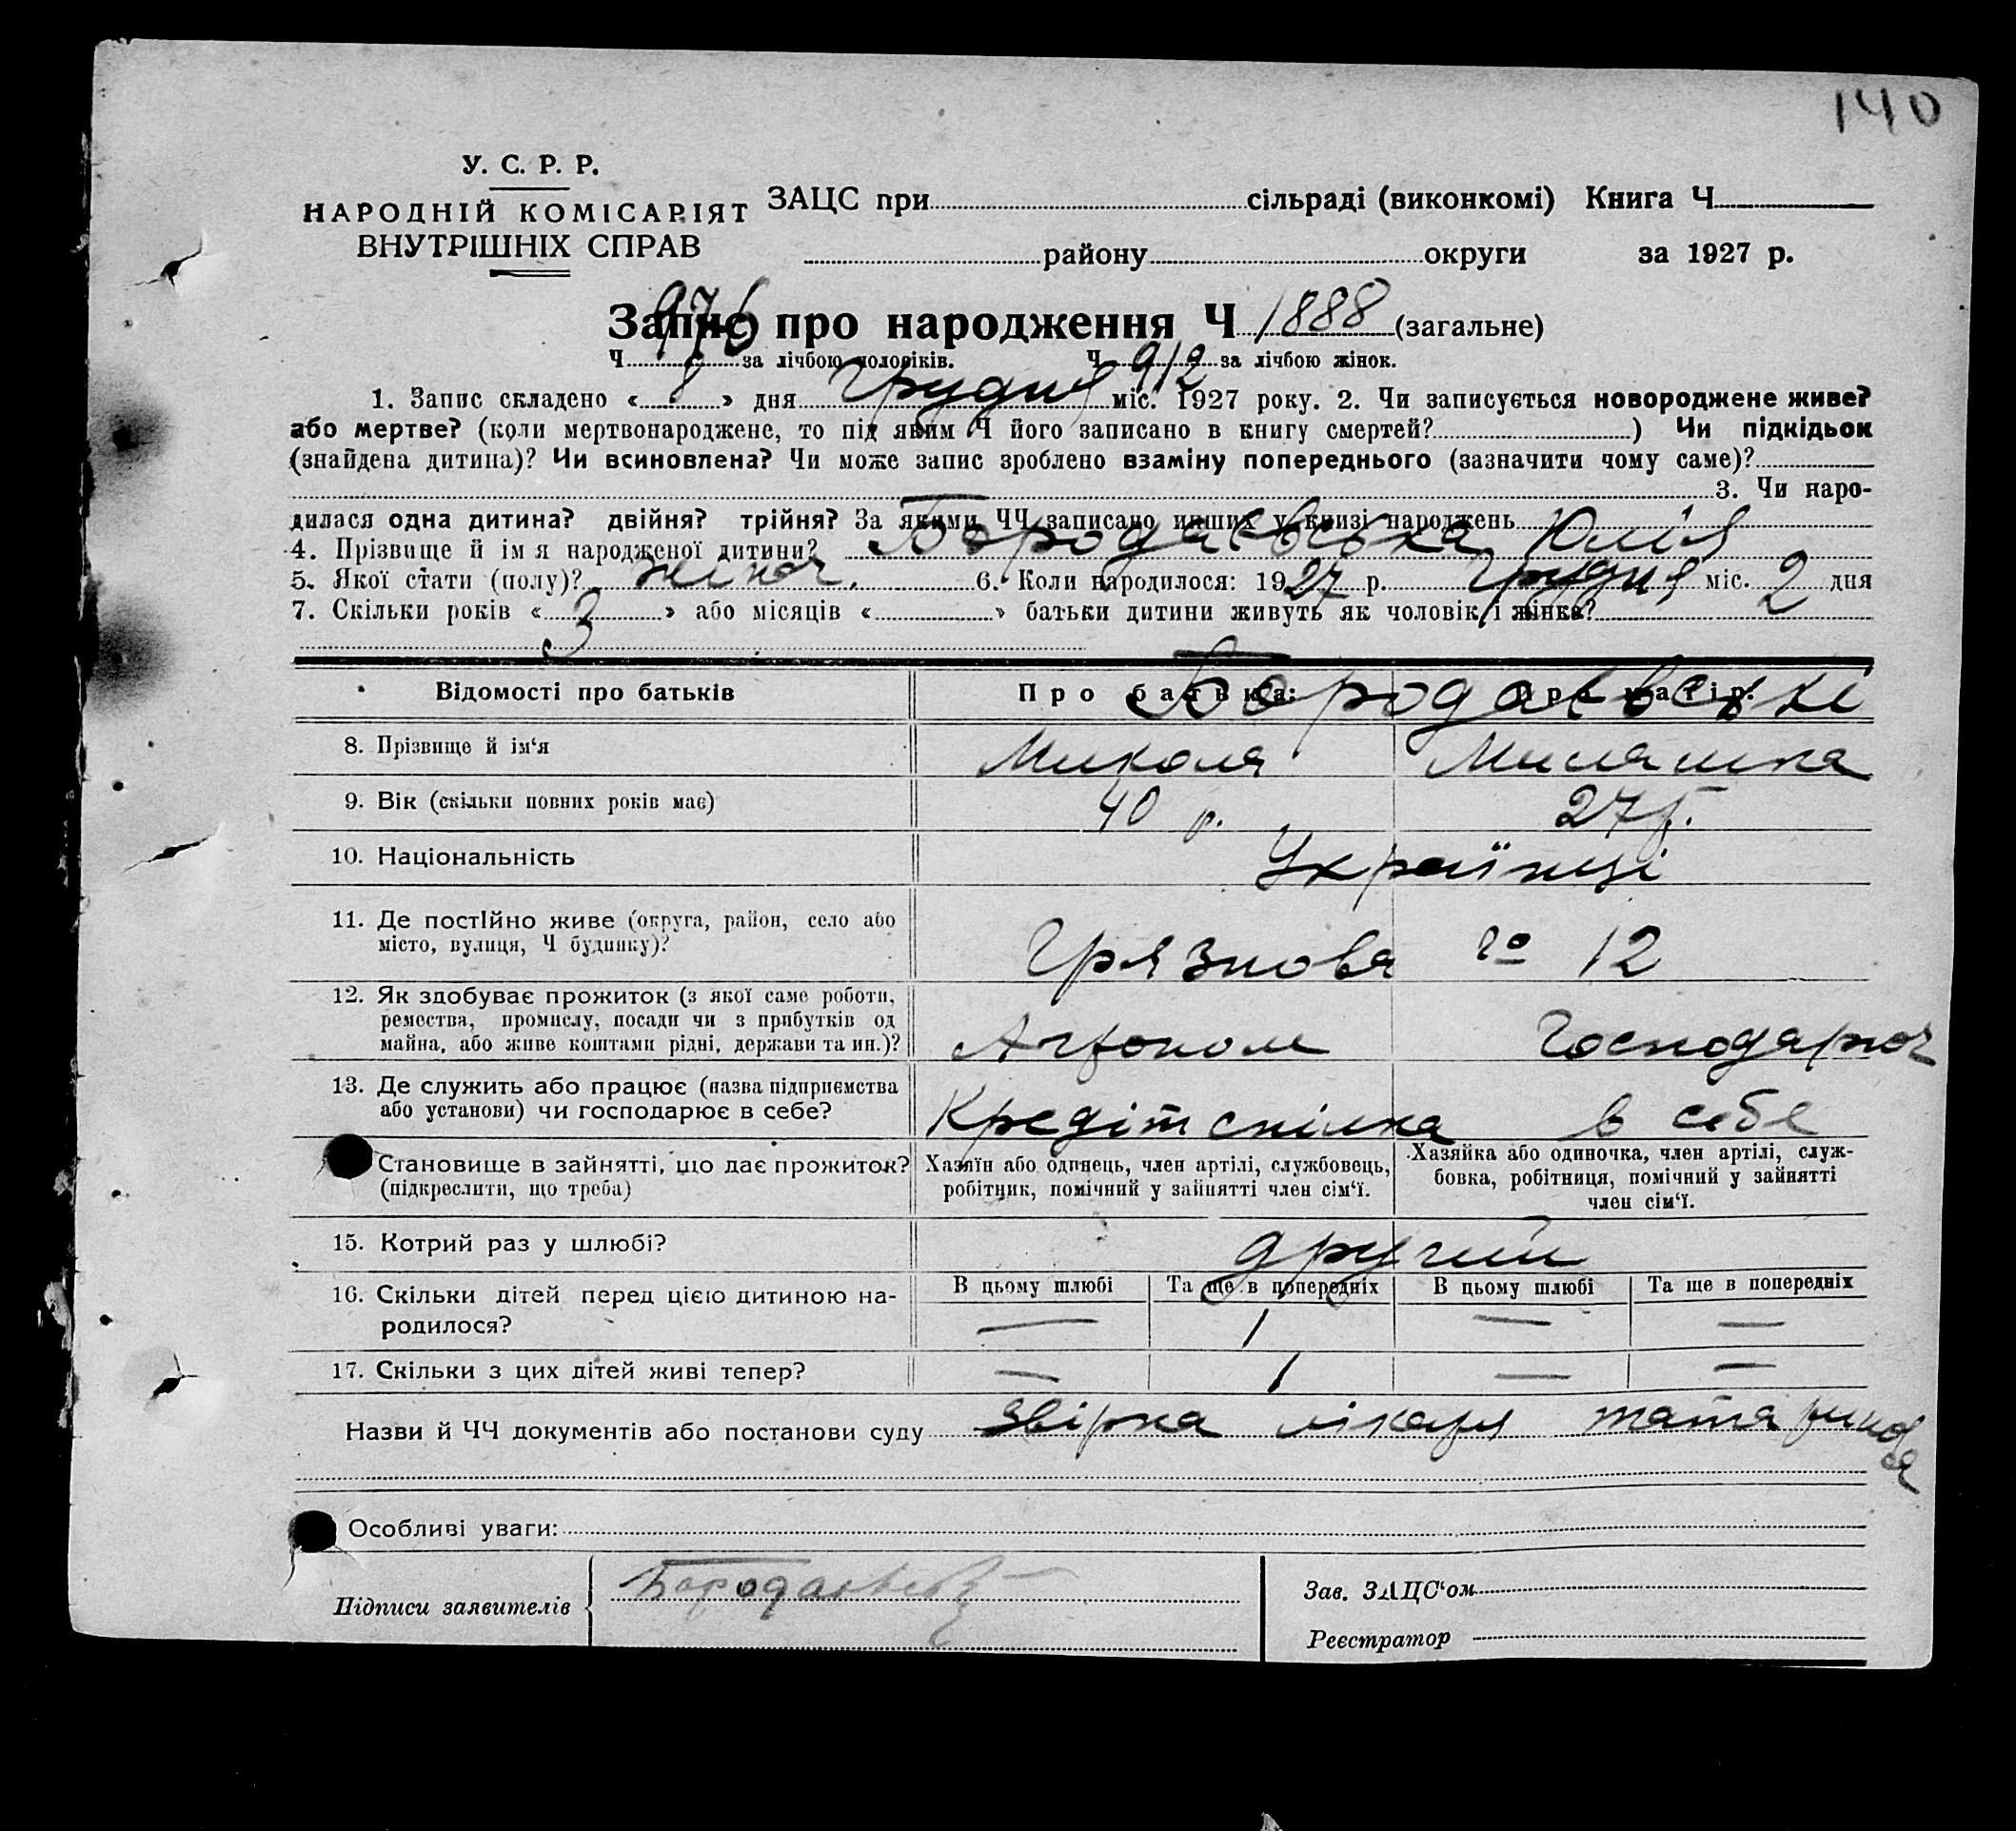 140
У. С. Р. Р.
НАРОДНІЙ КОМІСАРІЯТ
ВНУТРІШНІХ СПРАВ
ЗАЦС при сільраді (виконкомі) Книга Ч
району округи за 1927 р.
Запис про народження Ч 1888 (загальне)
Ч 976 за лічбою чоловіків. Ч 912 за лічбою жінок.
1. Запис складено « 8 » дня Грудня міс. 1927 року. 2. Чи записується новороджене живе?
або мертве? (коли мертвонароджене, то під яким Ч його записано в книгу смертей? ) Чи підкідьок
(знайдена дитина)? Чи всиновлена? Чи може запис зроблено взаміну попереднього (зазначити чому саме)?
3. Чи наро-
дилася одна дитина? двійня? трійня? За якими ЧЧ записано инших у книзі народжень
4. Прізвище й ім'я народженої дитини? Бородаєвська Юлія
5. Якої стати (полу)? жіноч. 6. Коли народилося: 1927 р. Грудня міс. 2 дня
7. Скільки років « 3 » або місяців « » батьки дитини живуть як чоловік і жінка?
Відомості про батьків Про батька: Про матір: Бородаєвські
8. Прізвище й ім'я Микола
9. Вік (скільки повних років має) 40 р. 27 р.
10. Національність Українці
11. Де постІйно живе (округа, район, село або
місто, вулиця, Ч будинку)? Грязнова 12
12. Як здобуває прожиток (з якої саме роботи,
ремества, промислу, посади чи з прибутків од
майна, або живе коштами рідні, держави та ин.)? Агроном Господарює
13. Де служить або працює (назва підприємства
або установи) чи господарює в себе? Кредіт спілка в себе
Становище в зайнятті, що дає прожиток?
(підкреслити, що треба)
Хазяїн або одинець, член артілі, службовець,
робітник, помічний у зайнятті член сім'ї.
Хазяйка або одиночка, член артілі, служ-
бовка, робітниця, помічний у зайнятті
член сім'ї.
15. Котрий раз у шлюбі? другий
16. Скільки дітей перед цією дитиною на-
родилося?
В цьому шлюбі Та ще в попередніх В цьому шлюбі Та ще в попередніх
— 1 — —
17. Скільки з цих дітей живі тепер? — 1 — —
Назви й ЧЧ документів або постанови суду лікаря
Особливі уваги:
Підписи заявителів
Зав. ЗАЦС'ом
Реєстратор